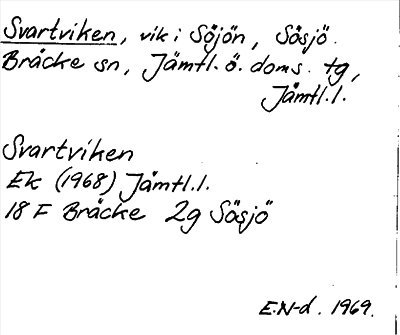 Svartviken, vik i Söjön, Sösjö.
Bräcke sn, Jämtl. ö. doms. tg,
Jämtl. l.
Svartviken
Ek (1968) Jämtl. l.
18 F Bräcke 2g Sösjö
E.N-d. 1969.